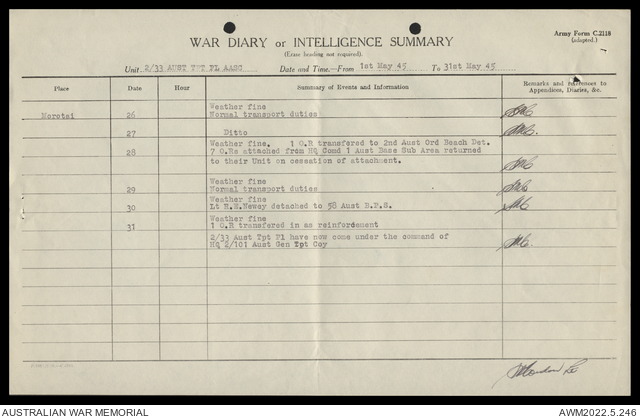 Army Form C.2118
(adapted.)
WAR DIARY or INTELLIGENCE SUMMARY
(Erase heading not required).
Unit 2/33 AUST TPT PL AASC Date and Time.—From 1st May 45 To 31st May 45
Place Date Hour Summary of Events and Information Remarks and references to
Appendices, Diaries, &c.
Weather fine
Morotai 26 Normal transport duties
27 Ditto
Weather fine. 1 O.R transfered to 2nd Aust Ord Beach Det.
28 7 O.Rs attached from HQ Comd 1 Aust Base Sub Area returned
to their Unit on cessation of attachment.
Weather fine
29 Normal transport duties
Weather fine
30 Lt R.E.Newey detached to 58 Aust B.P.S.
Weather fine
31 1 O.R transfered in as reinfordement
2/33 Aust Tpt Pl have now come under the command of
HQ 2/101 Aust Gen Tpt Coy
AUSTRALIAN WAR MEMORIAL AWM2022.5.246